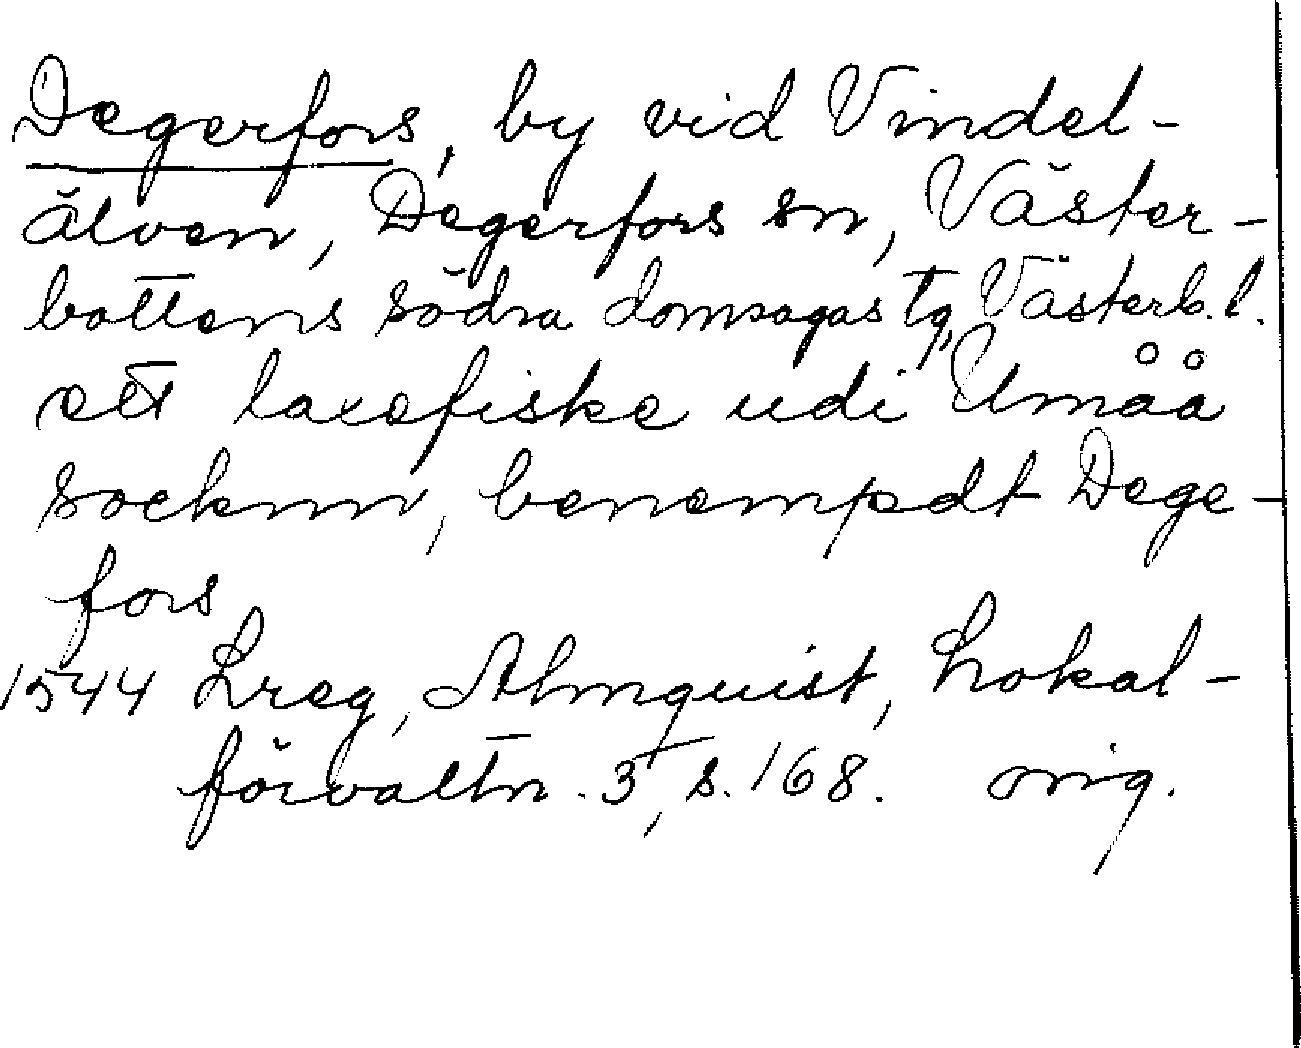 Degerfors, by vid Vindel-
älven, Degerfors sn, Väster-
bottens södra domsagas tg, Västerb. l.
ett laxefiske udi Umåå
socknn, benempdt Dege-
fors
1544 Lreg, Almquist, Lokal-
förvaltn. 3, s. 168. orig.